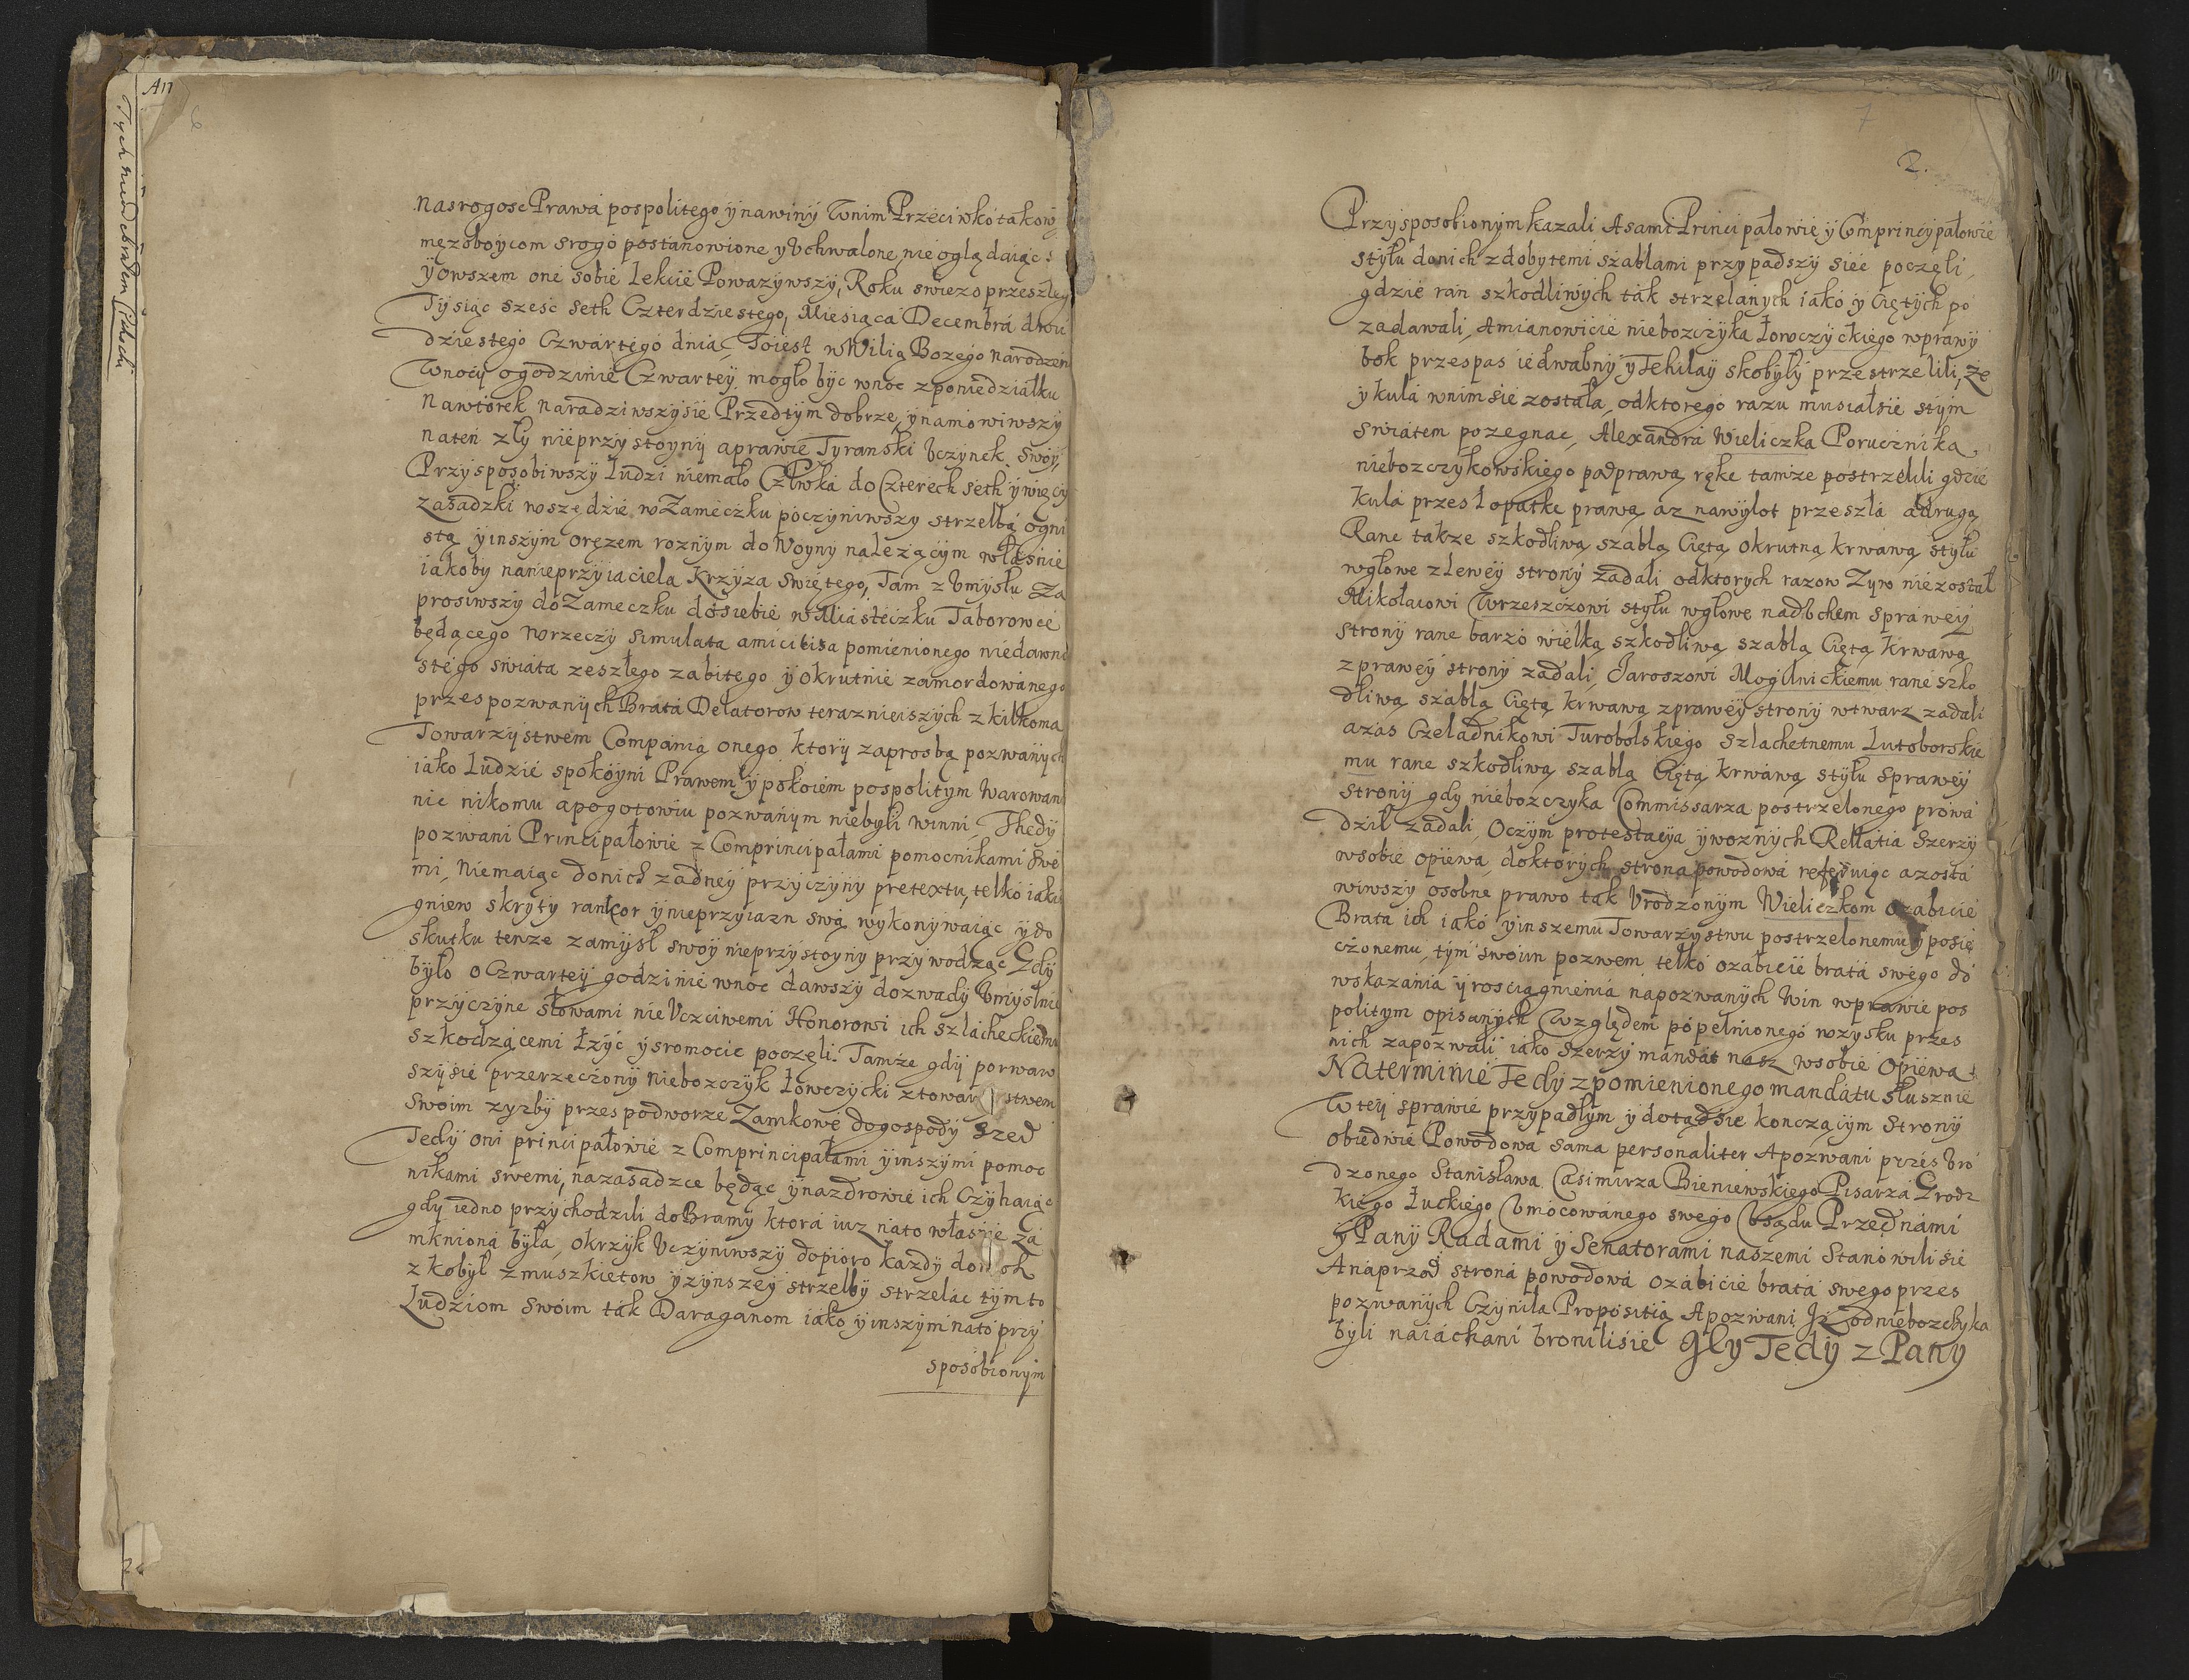 6
nasrogosc Prawa pospolitego y nawiny wnim Przeciwko takow
mezoboycom srogo postanowione y Vchwalone nieoglądaiąc
y owszem one sobie Lekcie Powazywszy, Roku swiezo przeszłeg
Tysiąc szesc seth Czterdziestego, Miesiąca Decembra dwu
dziestego Czwartego dnia, Toiest wWilią Bozego narodzen
Wnocy ogodzinie Czwartey, mogło byc wnoc zponiedziałku
Nawtorek naradziwszysie Przedtym dobrze, ynamowiwszy
naten zły nieprzystoyny aprawie Tyranski Vczynek swoy,
Przysposobiwszy ludzi niemało Człwka do Czterech seth y więcy
zasadzki wszędzie w Zameczku poczyniwszy strzelbą ogni
stą yinszym oręzem roznym do Woyny należącym własnie
iakoby nanieprzyiaciela Krzyza swiętego, Tam z Vmysłu Za
prosiwszy do Zameczku dosiebie w Miasteczku Taborowce
będącego wrzeczy simulata amicitisa pomienionego niedawno
stego swiata zeszłego zabitego y okrutnie zamordowanego
przes pozwanych Brata Delatorow terazniejszych z kilkoma
Towarzystwem Companią onego ktory zaprosbą pozwanych
iako Ludzie spokoyni Prawem y pokoiem pospolitym Warowan
nic nikomu apogotowiu pozwanym niebyli winni, Thedy
pozwani Principałowie z Comprincipałami pomocnikami swe
mi, Niemaiąc donich zadney przyczyny pretextu, telko iaki
gniew skryty rankor ynieprzyiazn swą wykonywaiąc ydo
skutku tenze zamysł swoy nieprzystoyny przywodząc Gdy
było o Czwartey godzinie wnoc dawszy dozwady Vmyslnie
przyczyne słowami nieVczciwemi Honorowi ich szlacheckiemu
szkodzącemi Łżyć ysromocic poczęli. Tamze gdy porwaw
szysie przerzeczony Nieboszczyk Łowczycki ztowar stwem
Swoim zyzby przes podworze Zamkowe dogospody szed
Tedy oni principałowie z Comprincipałami yinszymi pomoc
nikami swemi, nazasadzce będąc ynazdrowie ich Czyhaiąc
gdy iedno przychodzili do Bramy ktora iuz nato własnie za
mkniona była, okrzyk Vczyniwszy dopioro kazdy don ch
z kobył zmuszkietow yzynszey strzelby strzelac tymto
Ludziom swoim tak Daraganom iako yinszym nato przy
sposobionym
7
2.
Przysposobionym kazali A sami Principałowie y Comprincypałowie
styłu donich zdobytemi szablami przypadszy siec poczęli,
gdzie ran szkodliwych tak strzelanych iako y Ciętych po
zadawali, Amianowicie nieboszczyka Łowczyckiego wprawy
bok przespas iedwabny y Tehilay skobyły przestrzelili, ze
ykula wnimsie została, odktorego razu musiałsie stym
swiatem pozegnac, Alexandra Wieliczka Porucznika
niebozczykowskiego podprawą ręke tamze postrzelili gdzie
Kula przes Łopatke prawą az nawylot przeszla adrugą
Rane takze szkodliwą szablą Ciętą okrutną krwawą styłu
wgłowe zLewey strony zadali odktorych razow Zyw niezostał
Mikołaiowi Wrzeszczowi styłu wgłowe nadbchem sprawey
strony rane barzo wielką szkodliwą szablą Ciętą Krwawą
zprawey strony zadali, Jaroszowi Mogilnickiemu rane szko
dliwą szablą Ciętą krwawą zprawey strony wtwarz zadali
azas Czeladnikowi Turobolskiego Szlachetnemu Lutoborskie
mu rane szkodliwą szablą Ciętą krwawą styłu sprawey
strony gdy niebozczyka Commissarza postrzelonego prowa
dzil zadali, Oczym protestacya ywoznych Rellatia Szerzy
wsobie opiewa, doktorych strona powodowa referuiąc azosta
wiwszy osobne prawo tak Vrodzonym Wieliczkom ozabicie
Brata ich iako yinszemu Towarzystwu postrzelonemu y posie
czonemu, tym swoim pozwem telko ozabicie brata swego do
wskazania y rosciągnienia napozwanych Win wprawie pos
politym opisanych Względem popełnionego wzysku przes
nich zapozwali iako szerzy mandat nasz wsobie opiewa.
Naterminie Tedy zpomienionego mandatu słusznie
Wtey sprawie przypadłym y dotądsie konczącym Strony
obiedwie Powodowa sama personaliter Apozwani przes Vro
dzonego Stanisława Casimirza Bieniewskiego Pisarza Grodz
kiego Łuckiego Vmocowanego swego Vsądu Przednami
y Pany Radami y Senatorami naszemi Stanowilisie
Anaprzod strona powodowa ozabicie brata swego przes
pozwanych Czyniła Propositią Apozwani Iz odniebozchyka
byli naiachani bronilisie Gdy Tedy z Pany